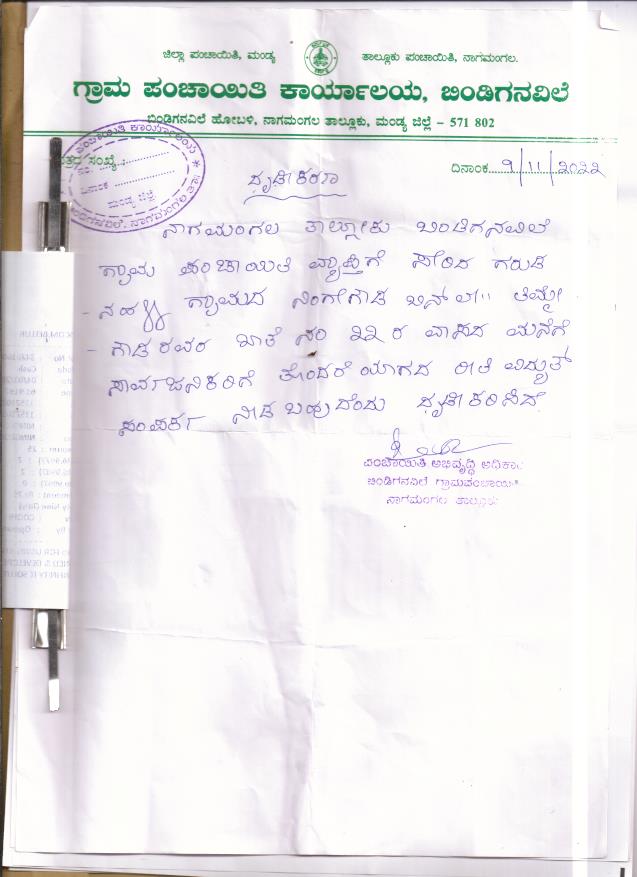 ಜಿಲ್ಲಾ ಪಂಚಾಯಿತಿ, ಮಂಡ್ಯ
ತಾಲ್ಲೂಕು ಪಂಚಾಯಿತಿ, ನಾಗಮಂಗಲ.
ಗ್ರಾಮ ಪಂಚಾಯಿತಿ ಕಾರ್ಯಾಲಯ, ಬಿಂಡಿಗನವಿಲೆ
ಬಿಂಡಿಗನವಿಲೆ ಹೋಬಳಿ, ನಾಗಮಂಗಲ ತಾಲ್ಲೂಕು, ಮಂಡ್ಯ ಜಿಲ್ಲೆ – 571 802
ಪತ್ರದ ಸಂಖ್ಯೆ :
ದಿನಾಂಕ 9/11/೨೦೨೨
ಪಂಚಾಯಿತಿ ಕಾರ್ಯಾಲಯ
ನಂ.
ದಿನಾಂಕ
ಮಂಡ್ಯ ಜಿಲ್ಲೆ
ಬಿಂಡಿಗನವಿಲೆ, ನಾಗಮಂಗಲ ತಾ||
ಧೃಡೀಕರಣ
ನಾಗಮಂಗಲ ತಾಲ್ಲೋಕು ಬಿಂಡಿಗನವಿಲೆ
ಗ್ರಾಮ ಪಂಚಾಯಿತಿ ವ್ಯಾಪ್ತಿಗೆ ಸೇರಿದ ಗರುಡ
ನಹಳ್ಳಿ ಗ್ರಾಮದ ನಿಂಗೇಗೌಡ ಬಿನ್ ಲೇ|| ತಿಮ್ಮೇ
ಗೌಡ ರವರ ಖಾತೆ ನಂ ೩೩ ರ ವಾಸದ ಮನೆಗೆ
ಸಾರ್ವಜನಿಕರಿಗೆ ತೊಂದರೆಯಾಗದ ರೀತಿ ವಿದ್ಯುತ್
ಸಂಪರ್ಕ ನೀಡ ಬಹುದೆಂದು ಧೃಡೀಕರಿಸಿದೆ.
ಪಂಚಾಯಿತಿ ಅಭಿವೃದ್ಧಿ ಅಧಿಕಾರಿ
ಬಿಂಡಿಗನವಿಲೆ ಗ್ರಾಮಪಂಚಾಯಿತಿ
ನಾಗಮಂಗಲ ತಾಲ್ಲೂಕು